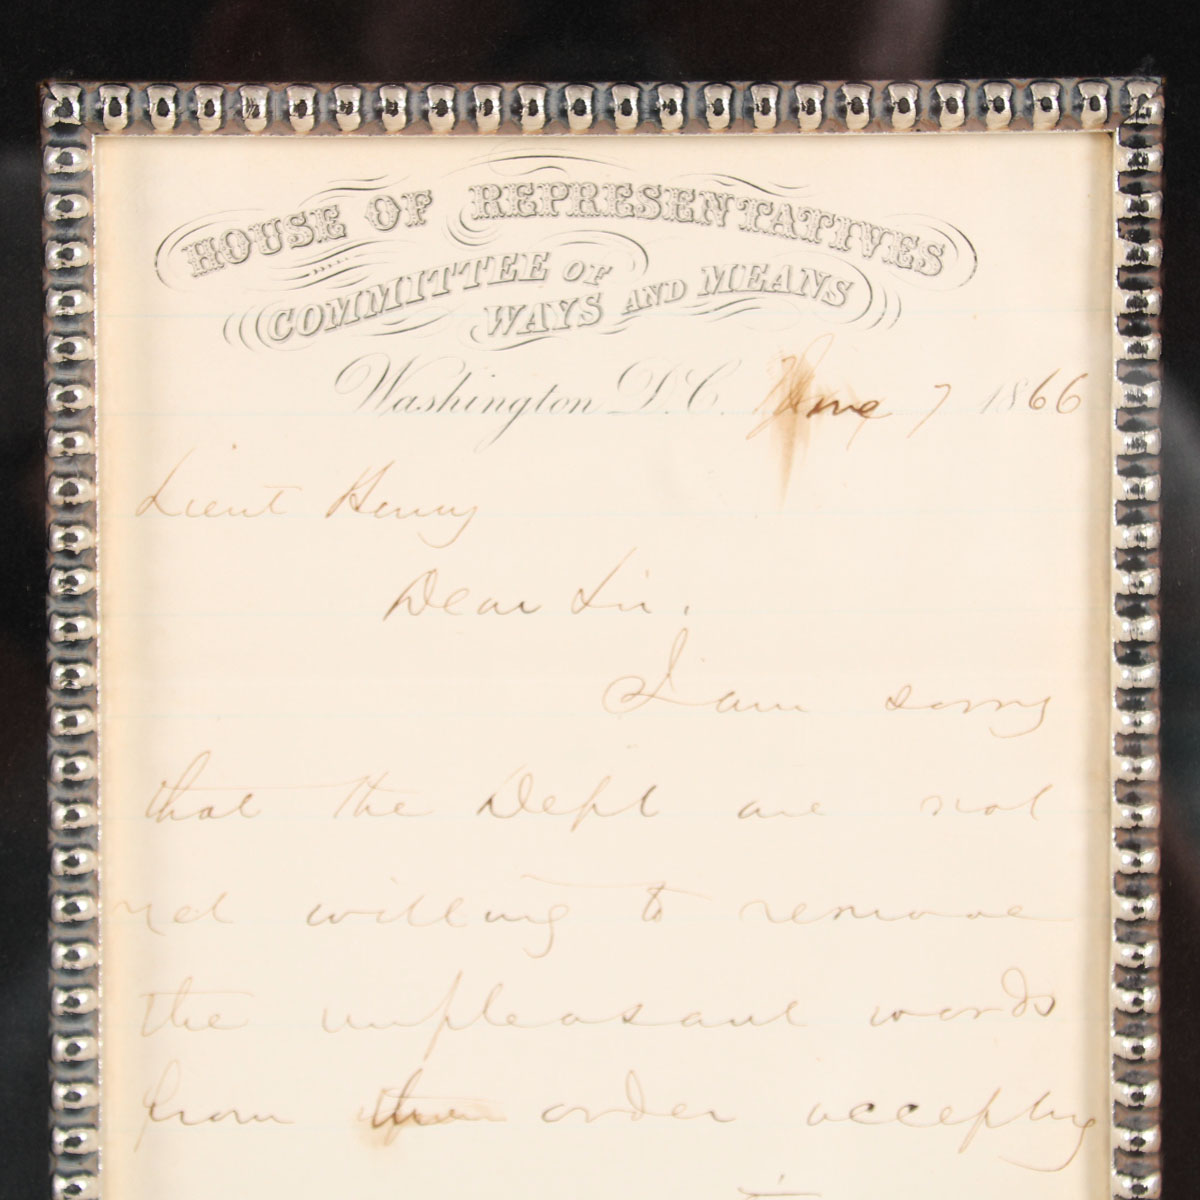 HOUSE OF REPRESENTATIVES
COMMITTEE OF
WAYS AND MEANS
Washington D.C. June 7 1866
Lieut Henry
Dear Sir.
I am sorry
that the Dept are not
willing to remove
the unpleasant words
from order accepting